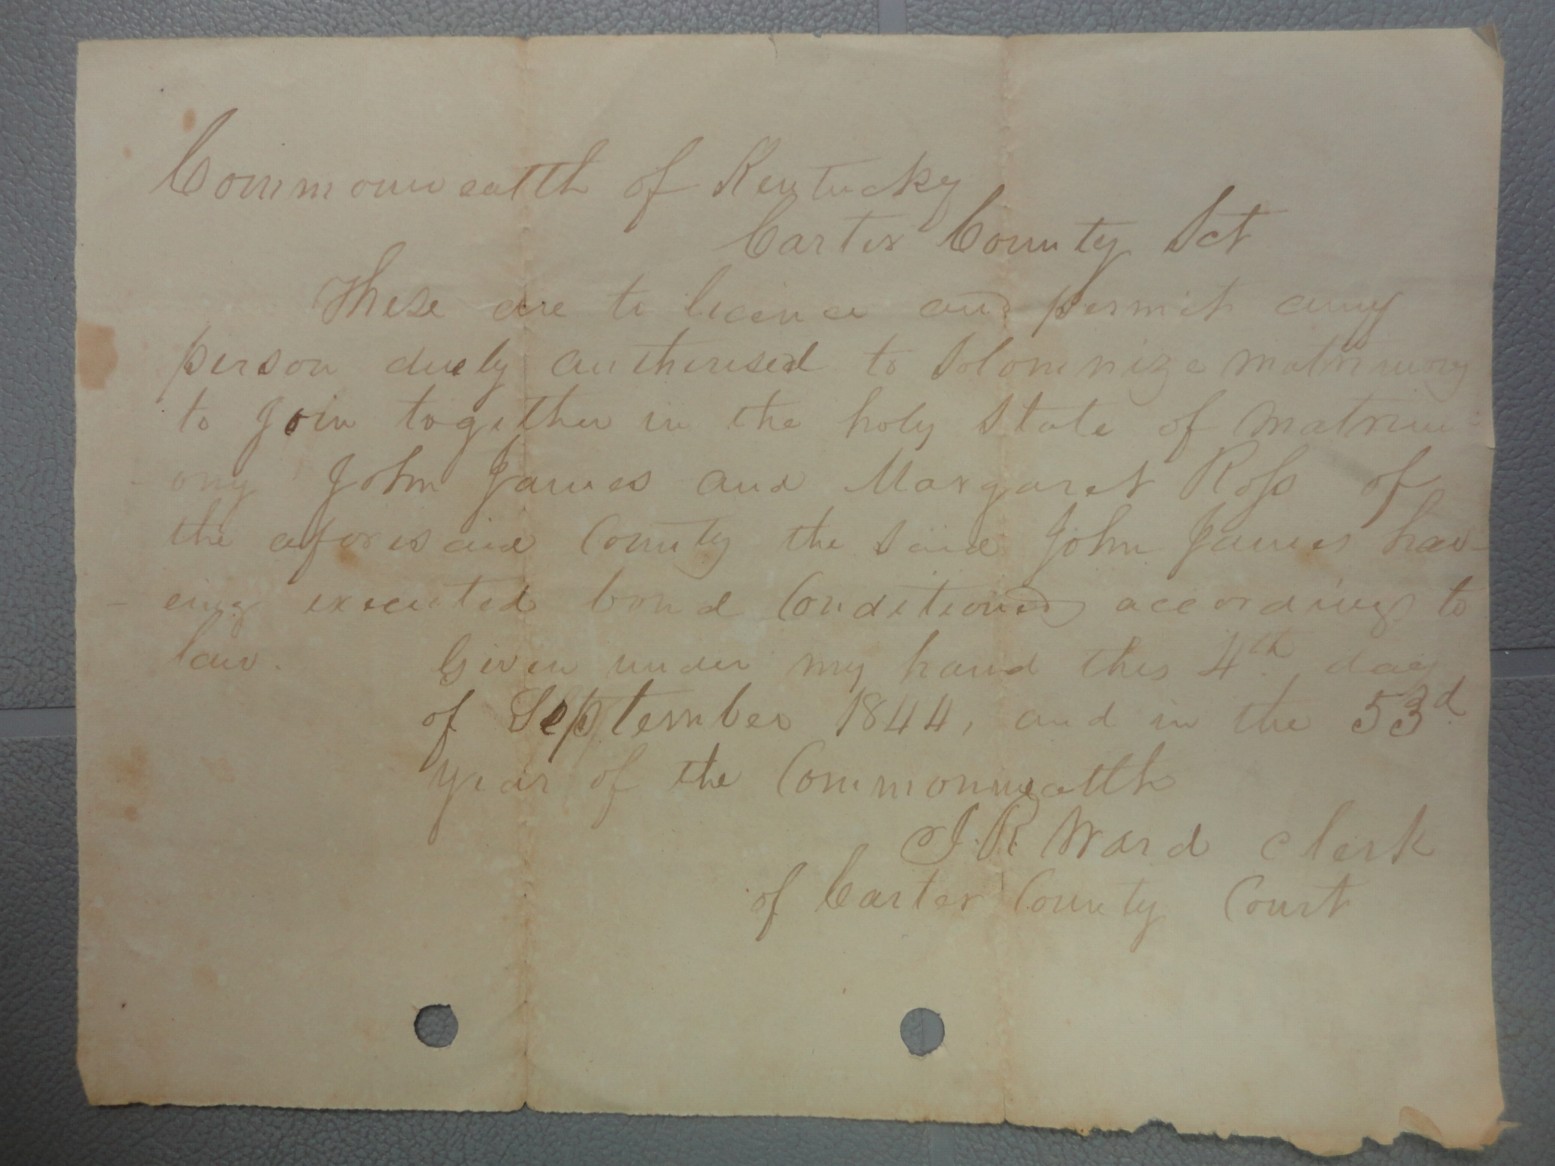 Commonwealth of Kentucky
Carter County Sct
These are to licence and permit any
person duely authorised to Solomnize matrimony
to join together in the holy State of matrim-
-ony John James and Margaret Ross of
the aforesaid County the said John James hav-
-eing executed bond Conditioned according to
law. Given under my hand this 4th day
of September 1844, and in the 53d
year of the Commonwealth
J. R. Ward Clerk
of Carter County Court